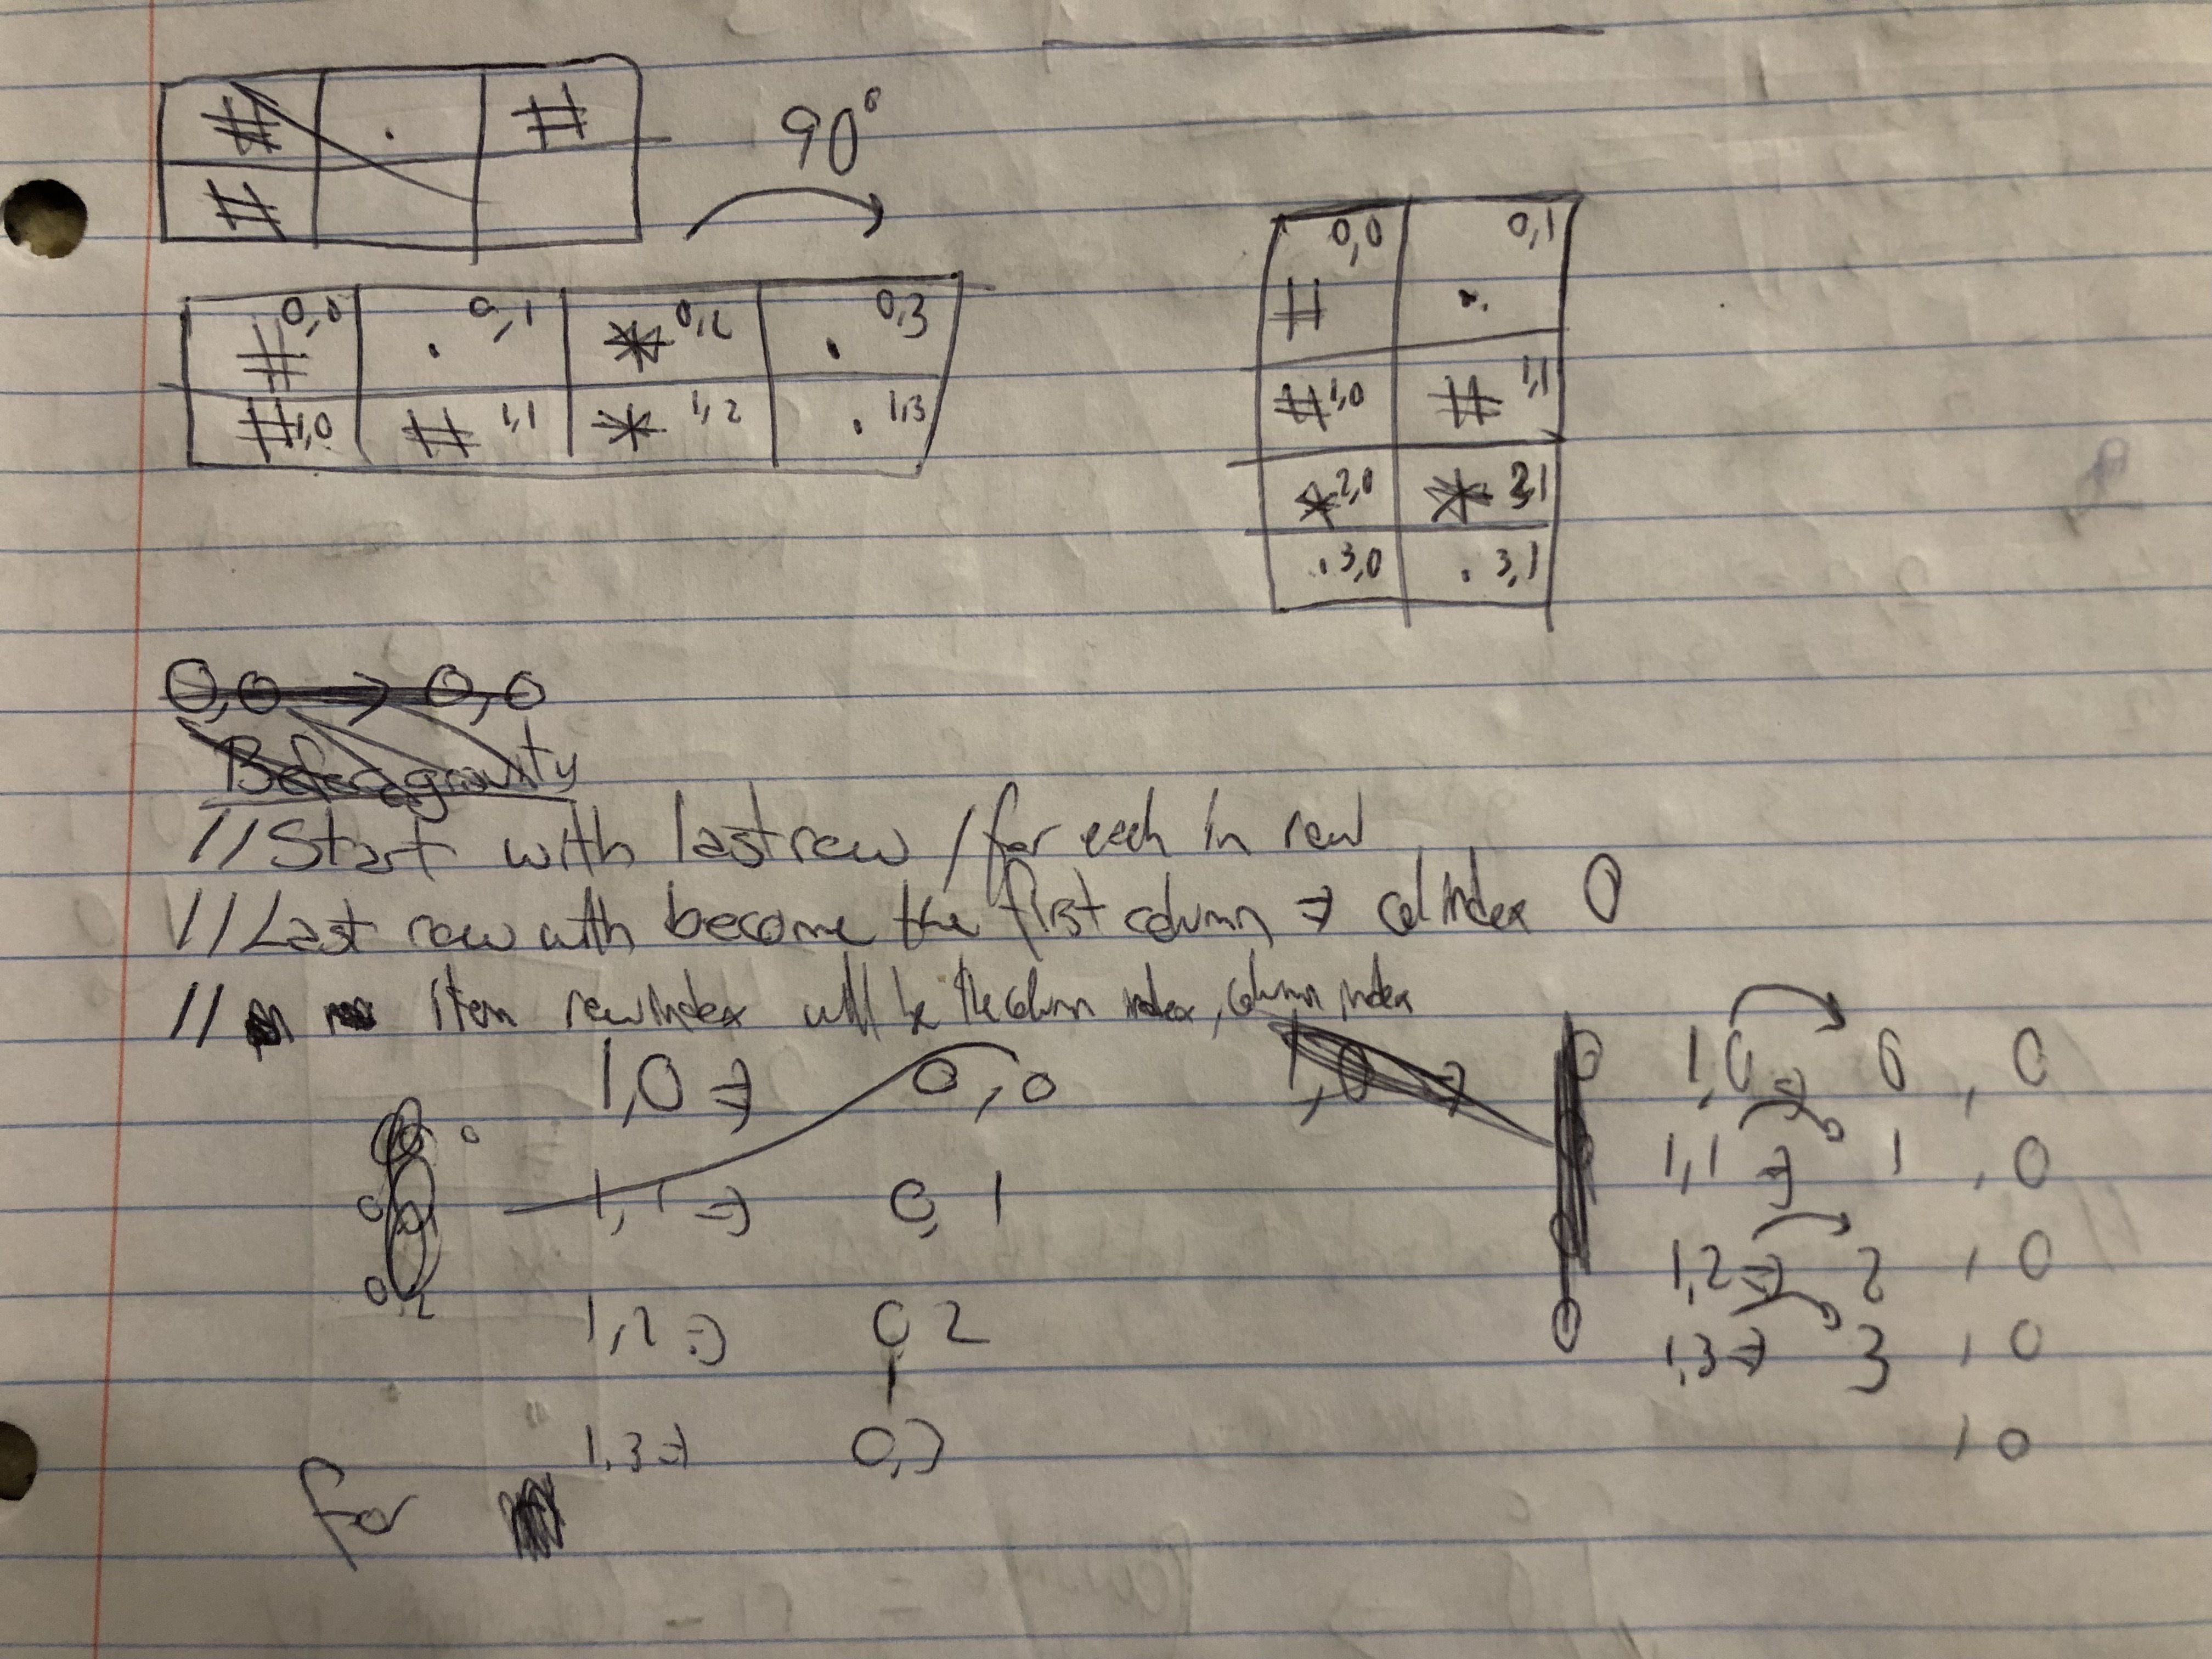 # . #
#
90°
# 0,0 . 0,1 * 0,2 . 0,3
# 1,0 # 1,1 * 1,2 . 1,3
0,0 0,1
# .
# 1,0 # 1,1
* 2,0 * 2,1
. 3,0 . 3,1
0,0 → 0,0
Before gravity
// Start with last row / for each in row
// Last row with become the first column ⇒ col index 0
// item row index will be the column index, column index
1,0 ⇒ 0,0
1,1 ⇒ 0,1
1,2 ⇒ 0 2
1,3 ⇒ 0,3
1,0 ⇒
1,0 ⇒ 0 , 0
1,1 ⇒ 1 , 0
1,2 ⇒ 2 , 0
1,3 ⇒ 3 , 0
, 0
for